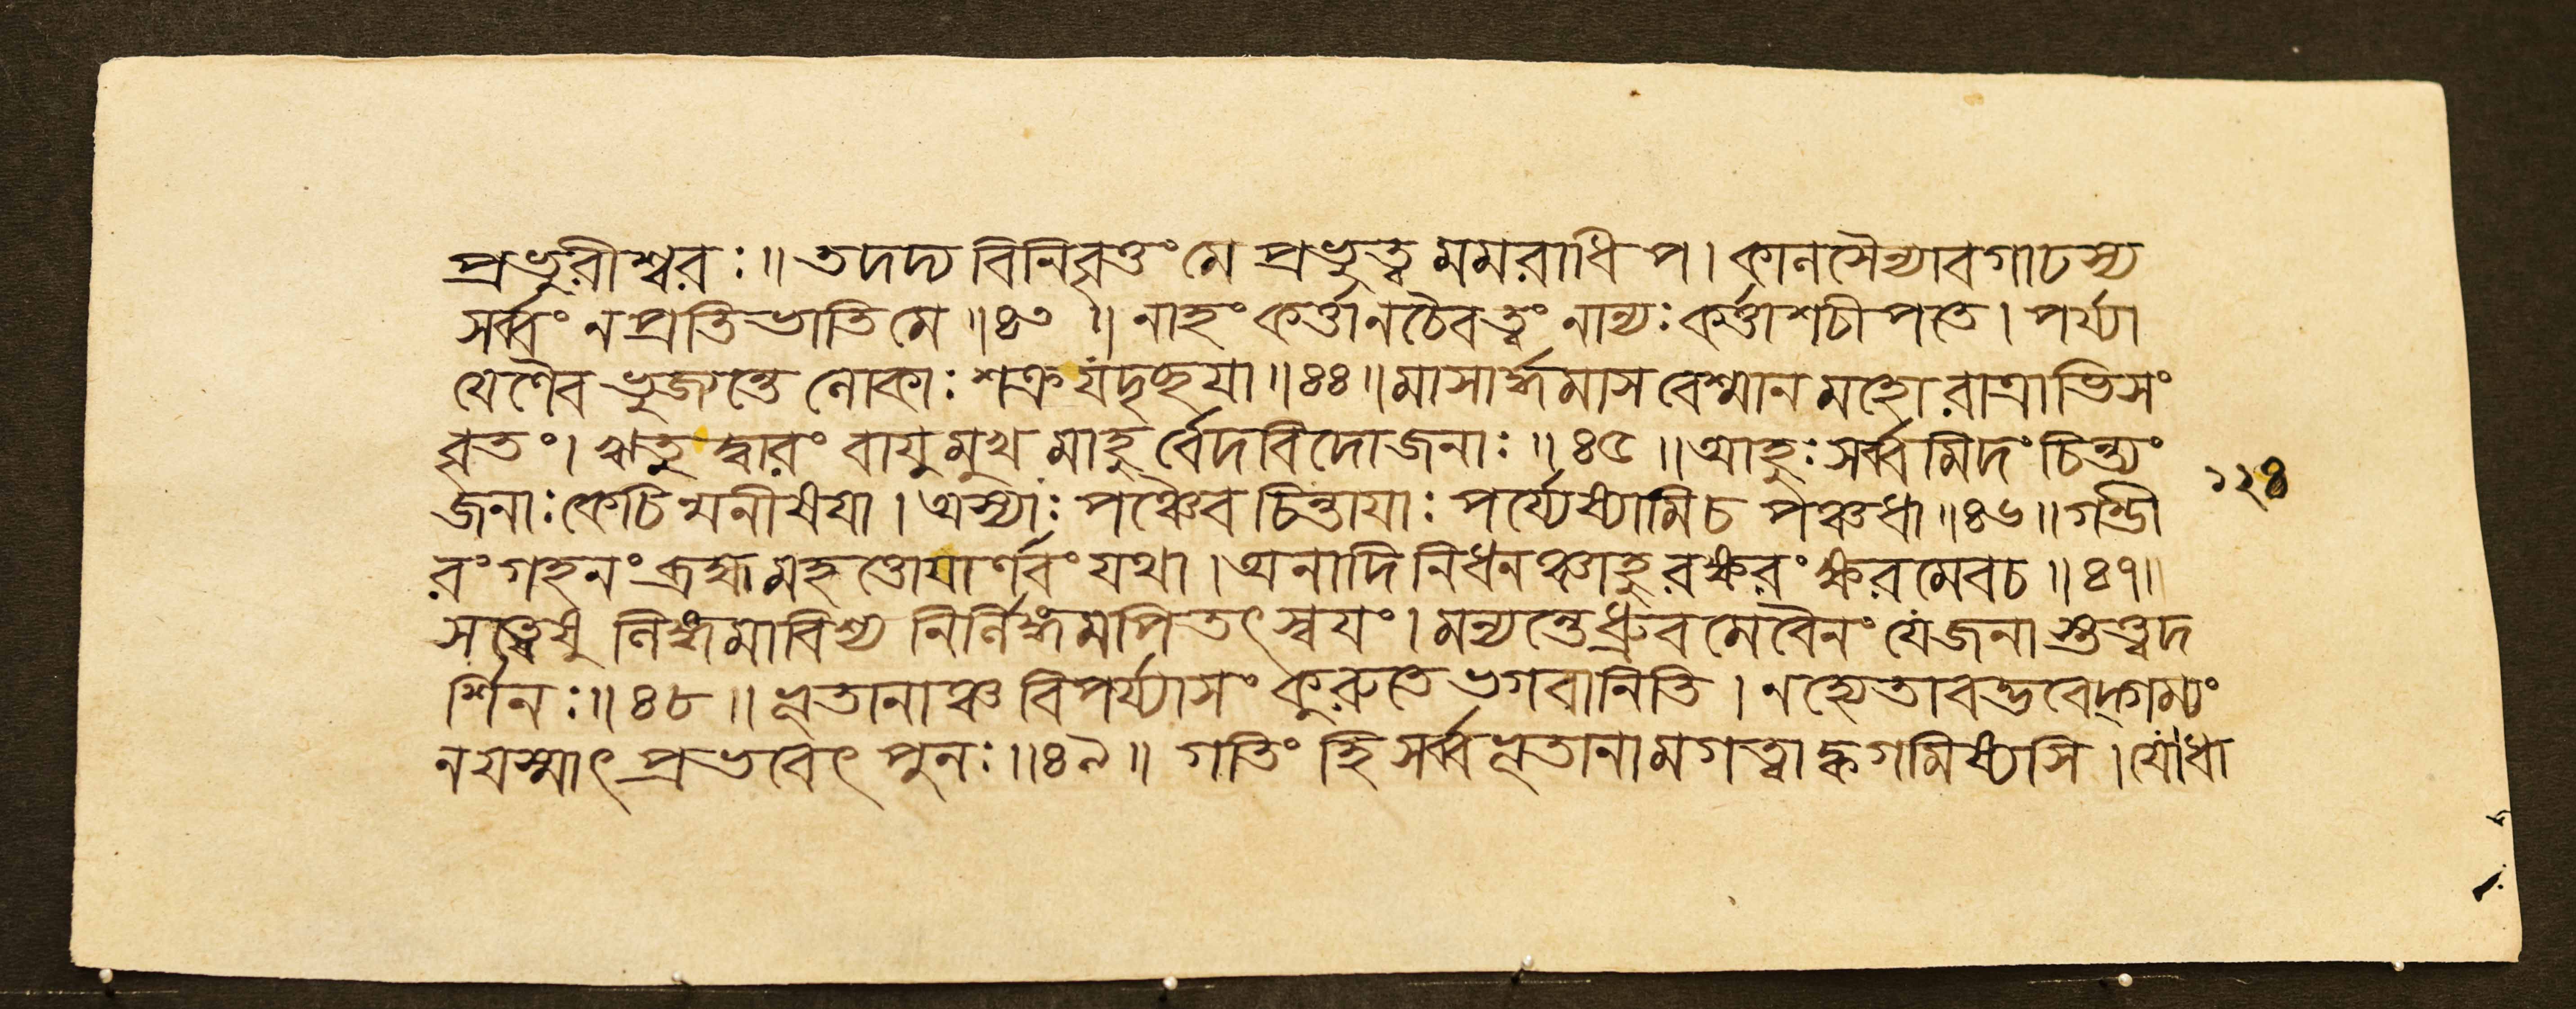 প্রভুরীশ্বরঃ॥তদদ্য বিনিবৃত্তং মে প্রভুত্ব মমরাধিপ।কালসৈন্যাবগাঢস্য
সর্ব্বং ন প্রতিভাতি মে॥৪৩॥নাহং কর্ত্তা নচৈব ত্বং নান্যঃ কর্ত্তা শচীপতে।পর্য্যা
যেণৈব ভুজ্যন্তে লোকাঃ শক্র যদৃচ্ছয়া॥৪৪॥মাসার্দ্ধমাস বেশ্মান মহোরাত্রাভিসং
বৃতং।ঋতু দ্বারং বায়ুমুখ মাহুর্বেদবিদোজনাঃ॥৪৫॥আহুঃ সর্ব্বমিদং চিন্ত্যং
জনাঃ কেচিন্মনীষয়া।অস্যাঃ পঞ্চৈব চিন্তায়াঃ পর্য্যেষ্যামিচ পঞ্চধা॥৪৬॥গম্ভী
রং গহনং ব্রহ্ম মহত্তোয়ার্ণবং যথা।অনাদিনিধনঞ্চাহুরক্ষরং ক্ষরমেবচ॥৪৭॥
সত্ত্বেষু লিঙ্গমাবিশ্য নির্লিঙ্গমপি তৎ স্বয়ং।মন্যন্তে ধ্রুবমেবৈনং যে জনা স্তত্ত্বদ
র্শিনঃ॥৪৮॥ভূতানাঞ্চ বিপর্য্যাসং কুরুতে ভগবানিতি।নহ্যেতাবদ্ভবেদ্গম্যং
ন যস্মাৎ প্রভবেৎ পুনঃ॥৪৯॥গতিং হি সর্ব্বভূতানামগত্বা ক্ব গমিষ্যসি।যোধা
১২৪